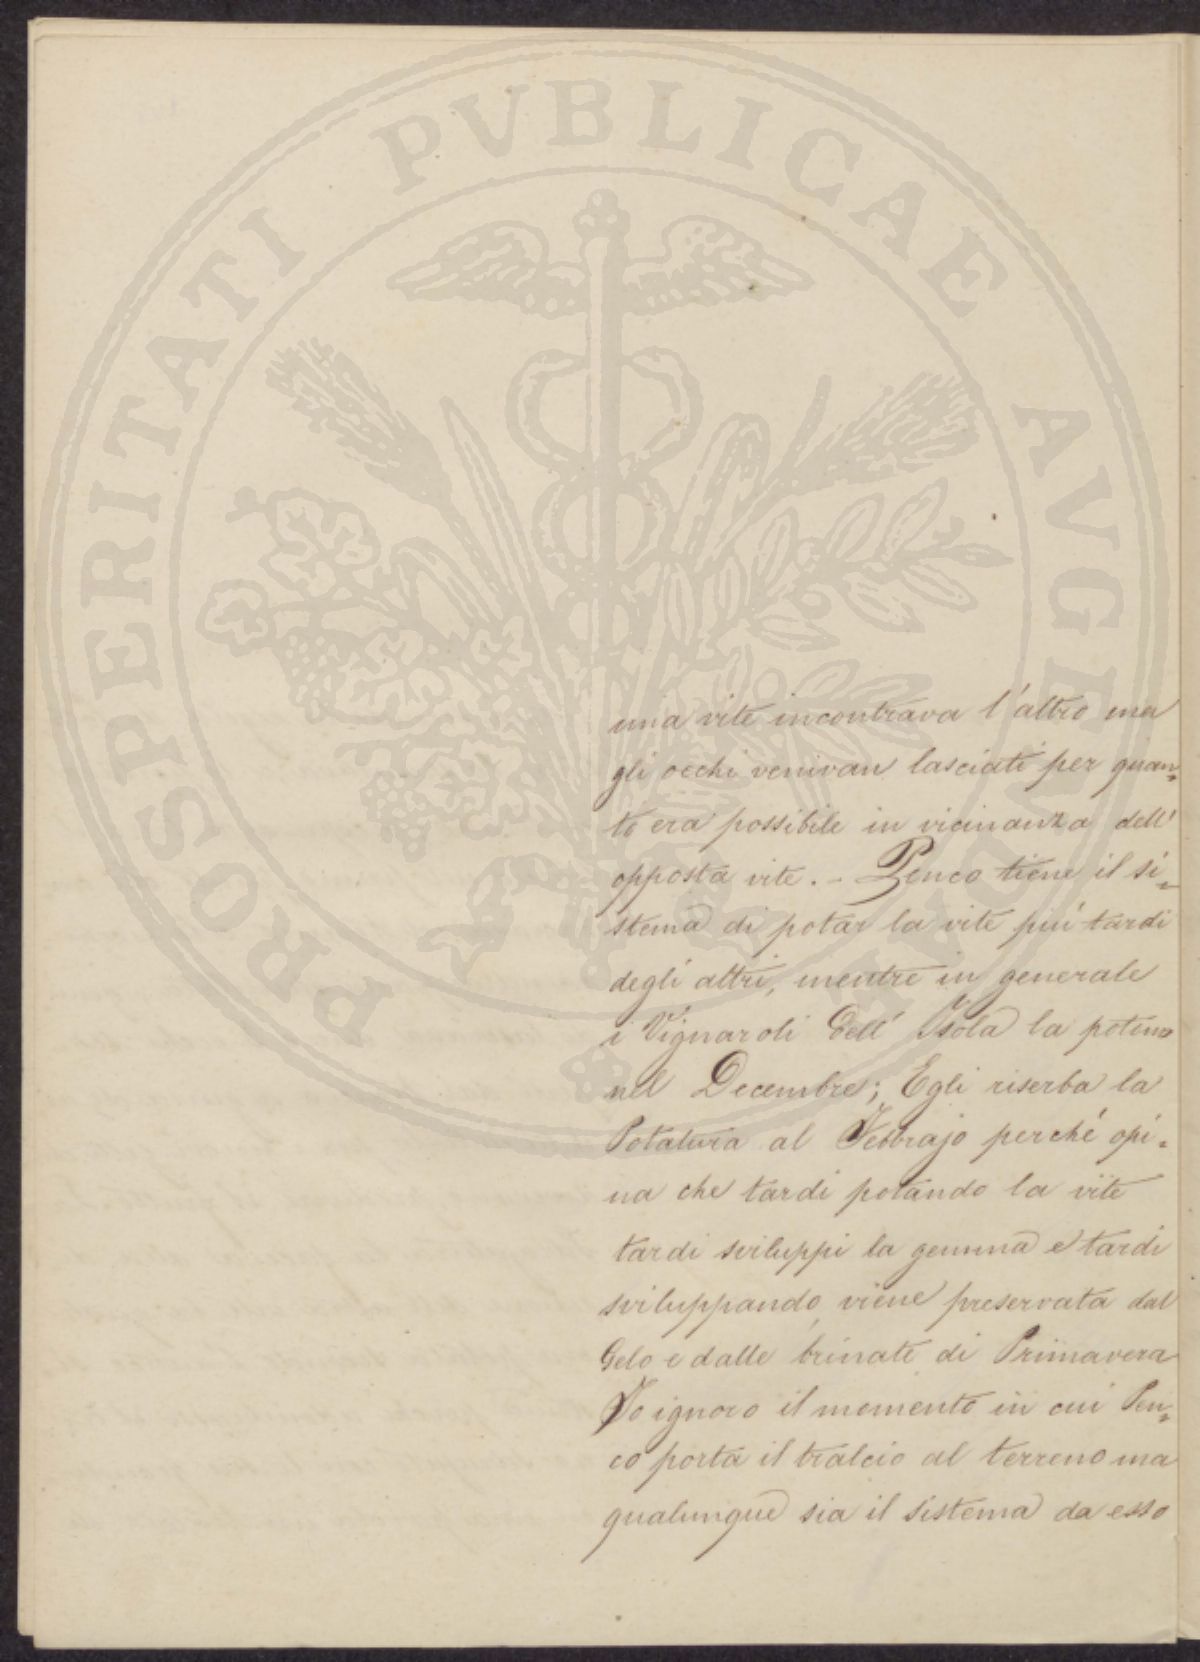 PROSPERITATI PVBLICAE AVGENDAE
una vite incontrava l'altro ma
gli occhi venivan lasciati per quan=
to era possibile in vicinanza dell'
opposta vite. – Penco tiene il si=
stema di potar la vite piú tardi
degli altri, mentre in generale
i Vignaroli dell' Isola la potano
nel Decembre; Egli riserba la
Potatura al Febbrajo perché opi=
na che tardi potando la vite
tardi sviluppi la gemma e tardi
sviluppando, viene preservata dal
Gelo e dalle brinate di Primavera
Io ignoro il momento in cui Pen=
co porta il tralcio al terreno ma
qualunque sia il sistema da esso